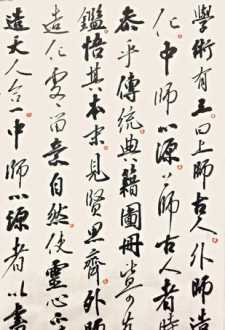 學術有三曰上師古人外師造
化中師心源上師古人者時
參乎傳統典籍圖冊皆可
鑑悟其本末見賢思齊外師
造化處〻留意自然使靈心不
造天人合一中師心源者以書